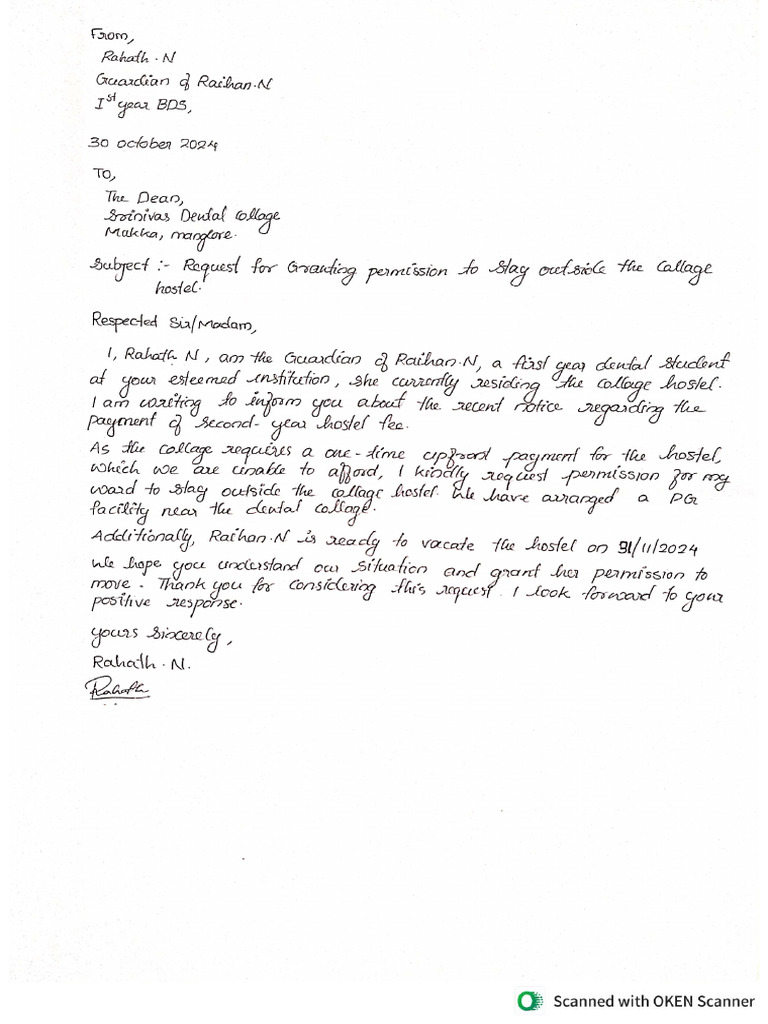 From,
Rahath .N
Guardian of Raihan.N
Ist year BDS,
30 october 2024
To,
The Dean,
Srinivas Dental Collage
Mukka, manglore.
Subject :- Request for Granting permission to stay outside the Collage
hostel.
Respected Sir/Madam,
I, Rahath N, am the Guardian of Raihan.N, a first year dental student
at your esteemed institution, she currently residing the collage hostel.
I am writing to inform you about the recent notice regarding the
payment of second-year hostel fee.
As the collage requires a one-time upfront payment for the hostel,
which we are unable to afford, I kindly request permission for my
ward to stay outside the collage hostel. We have arranged a PG
facility near the dental collage.
Additionally, Raihan.N is ready to vacate the hostel on 31/11/2024
We hope you understand our situation and grant her permission to
move. Thank you for considering this request. I look forward to your
positive response.
yours sincerely,
Rahath .N.
Rahath
Scanned with OKEN Scanner